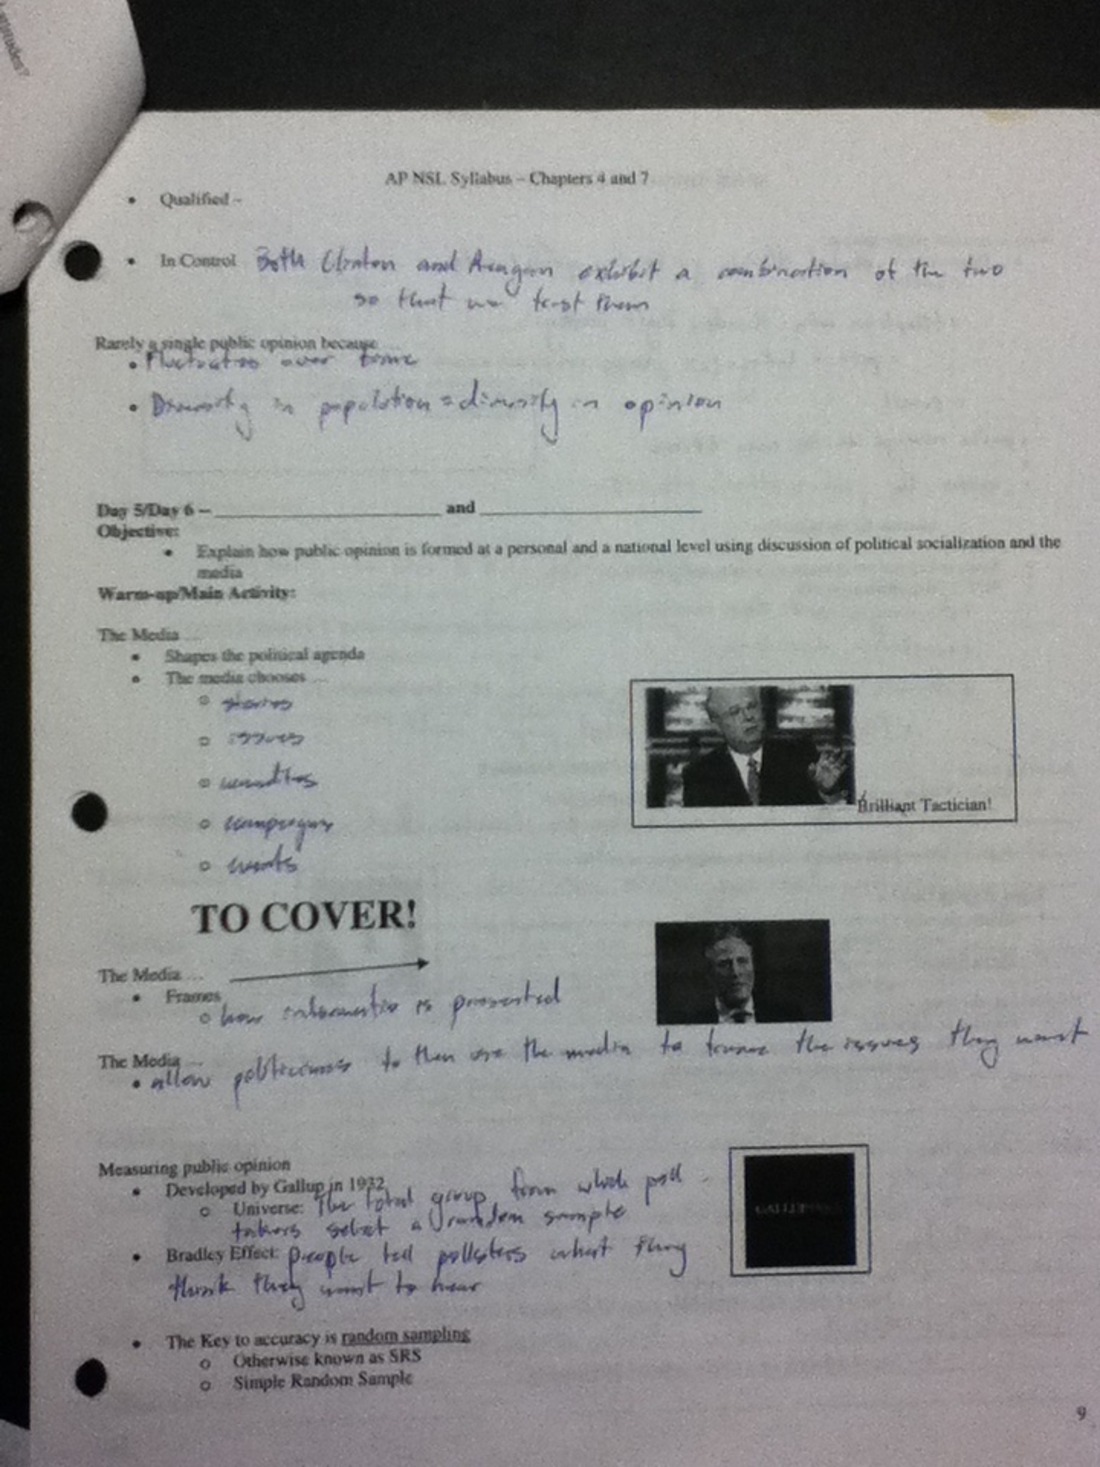 AP NSL Syllabus – Chapters 4 and 7
• Qualified –
• In Control Both Clinton and Reagan exhibit a combination of the two
so that we trust them
Rarely a single public opinion because ...
• Fluctuates over time
• Diversity in population = diversity in opinion
Day 5/Day 6 – and
Objective:
• Explain how public opinion is formed at a personal and a national level using discussion of political socialization and the
media
Warm-up/Main Activity:
The Media ...
• Shapes the political agenda
• The media chooses ...
○ stories
○ issues
○
○ campaigns
○ events
Brilliant Tactician!
TO COVER!
The Media ...
• Frames
○ how information is presented
The Media ...
• allow politicians to then use the media to frame the issues they want
Measuring public opinion
• Developed by Gallup in 1932
○ Universe: The total group from which poll
takers select a random sample
GALLUP
• Bradley Effect: people tell pollsters what they
think they want to hear
• The Key to accuracy is random sampling
○ Otherwise known as SRS
○ Simple Random Sample
9